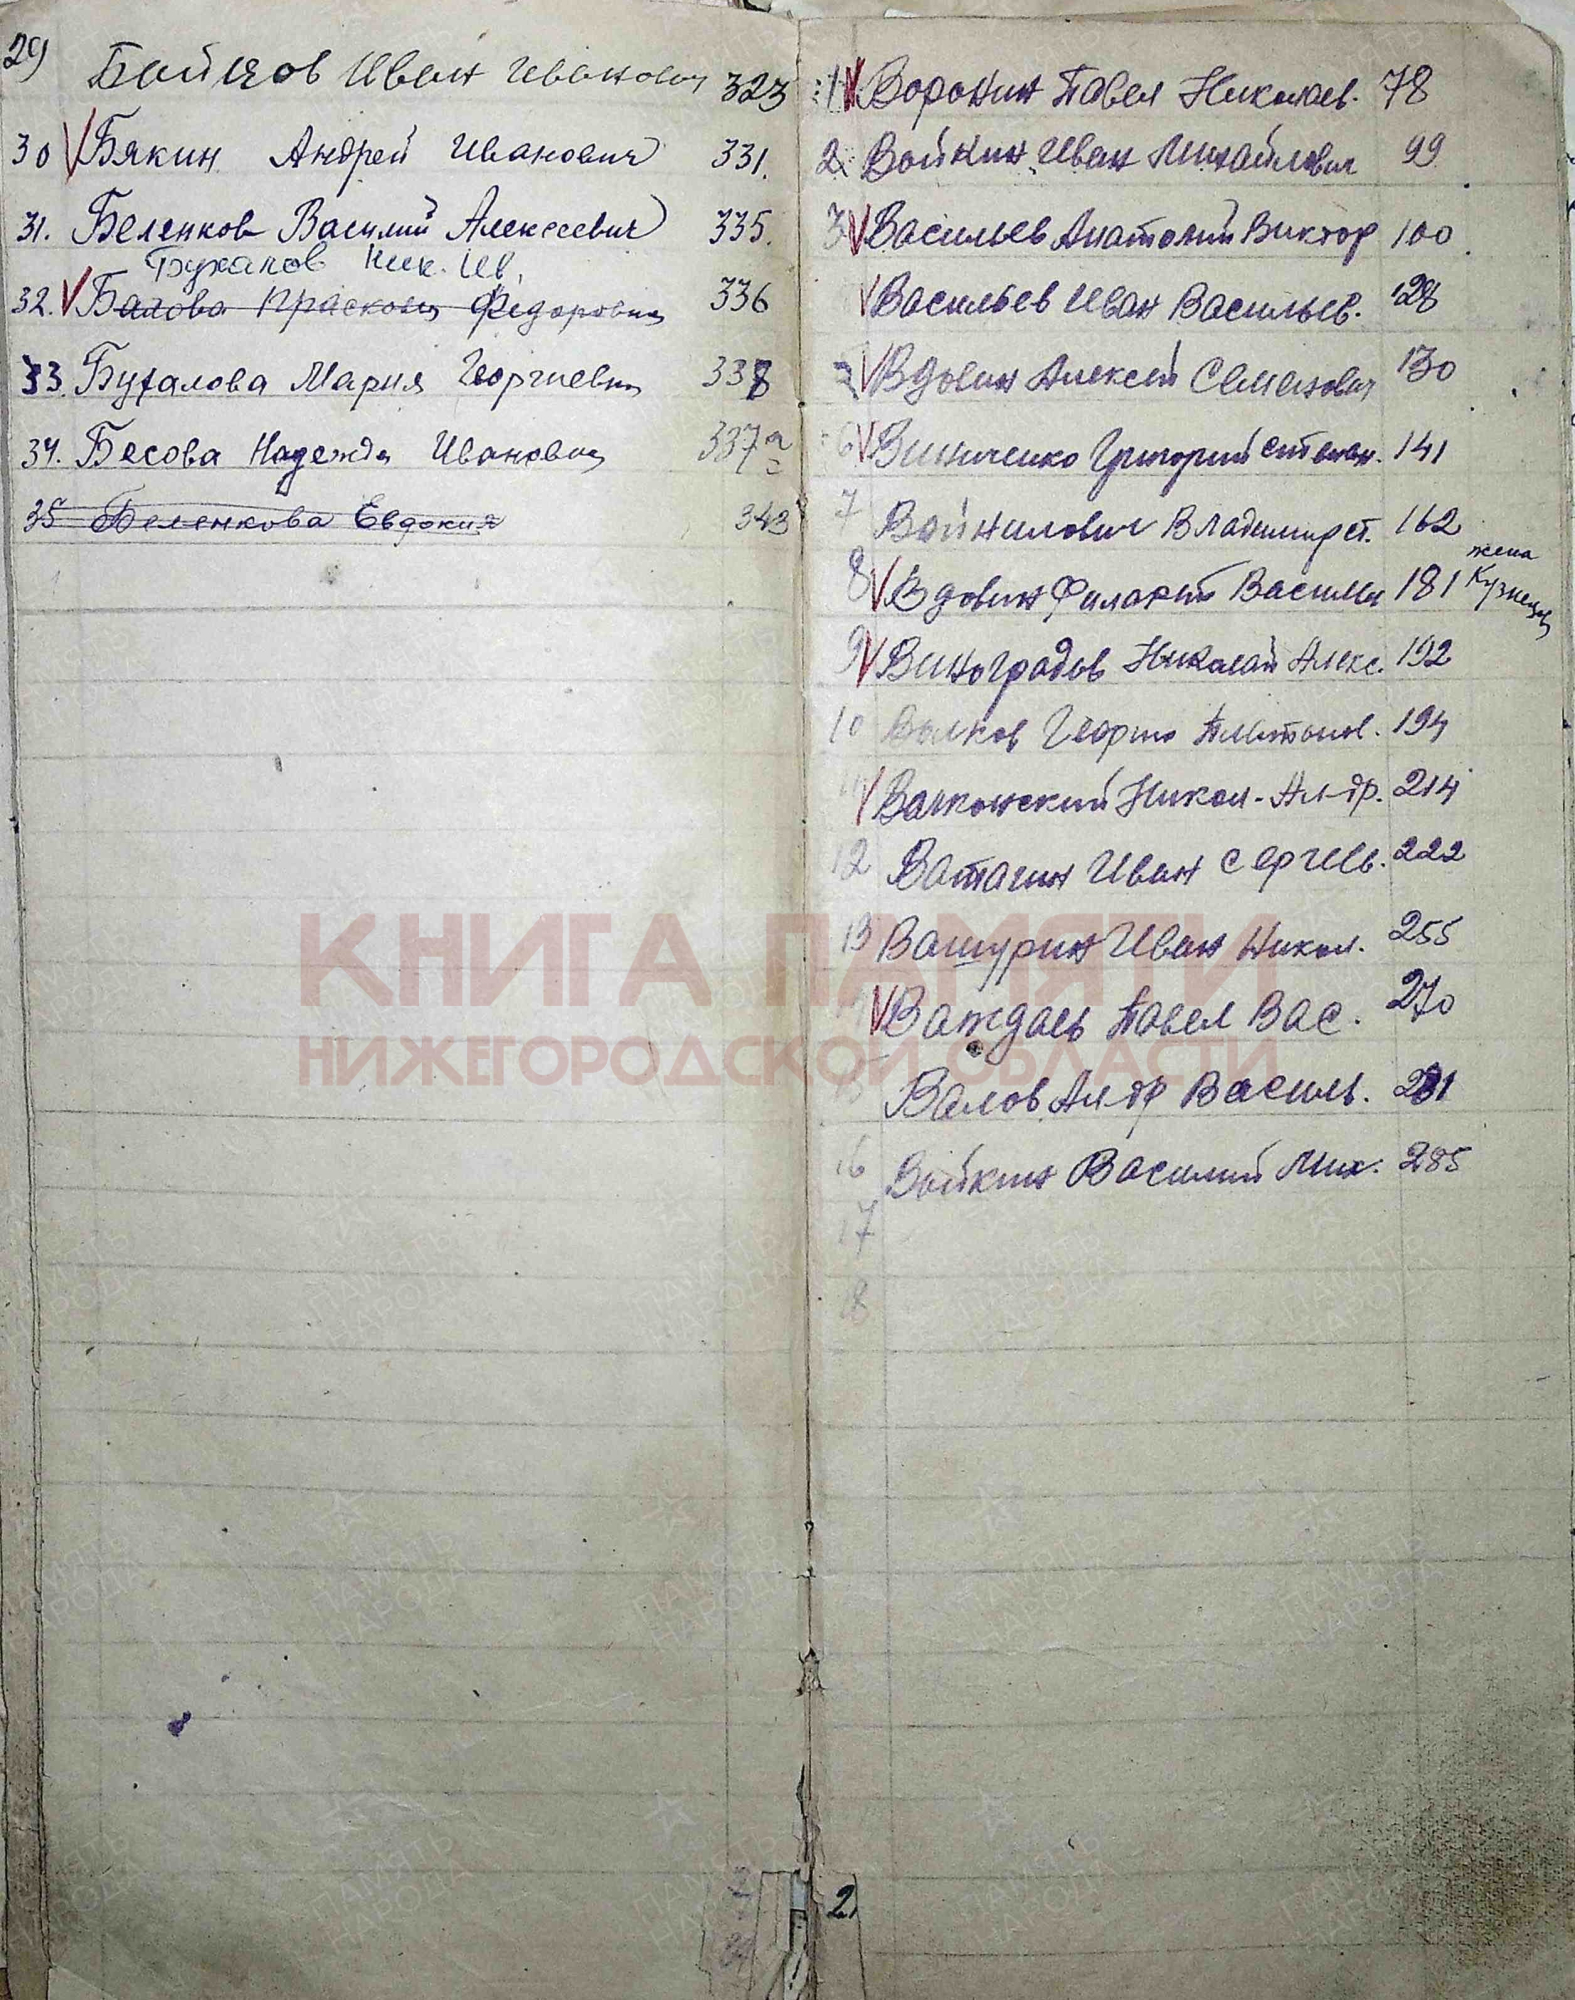 29 Бойцов Иван Иванович 323
30 V Бякин Андрей Иванович 331.
31. Беленков Василий Алексеевич 335.
Бухалов Ник. Ив.
32. V Балова Прасковья Федоровна 336
33. Буталова Мария Георгиевна 338
34. Бесова Надежда Ивановна 337а
35 Беленкова Евдокия 343
1 V Воронин Павел Николаев. 78
2 Войкин Иван Михайлович 99
3 V Васильев Анатолий Виктор 100
V Васильев Иван Васильев. 128
V Вдовин Алексей Семенович 130
6 V Виниченко Григорий Степан. 141
7 Войнилович Владимир Ст. 162
жена
8 V Вдовин Филарет Василии 181 Кузнецов
9 V Виноградов Николай Алекс. 192
10 Волков Георгий Платонов. 194
V Волконский Никол. Ал-др. 214
12 Ватагин Иван Сергеев. 222
13 Вашурин Иван Никол. 255
V Важдаев Павел Вас. 270
Валов Ал-др Василь. 281
16 Войкин Василий Мих. 285
17
18
2
КНИГА ПАМЯТИ
НИЖЕГОРОДСКОЙ ОБЛАСТИ
ПАМЯТЬ НАРОДА